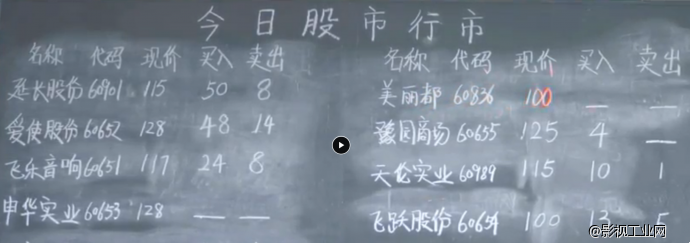 今日股市行市
名称 代码 现价 买入 卖出
延长股份 60901 115 50 8
爱使股份 60652 128 48 14
飞乐音响 60651 117 24 8
申华实业 60653 128 — —
名称 代码 现价 买入 卖出
美丽都 60836 100 — —
豫园商场 60655 125 4 —
天伦实业 60989 115 10 1
飞跃股份 60654 100 13 5
@影视工业网